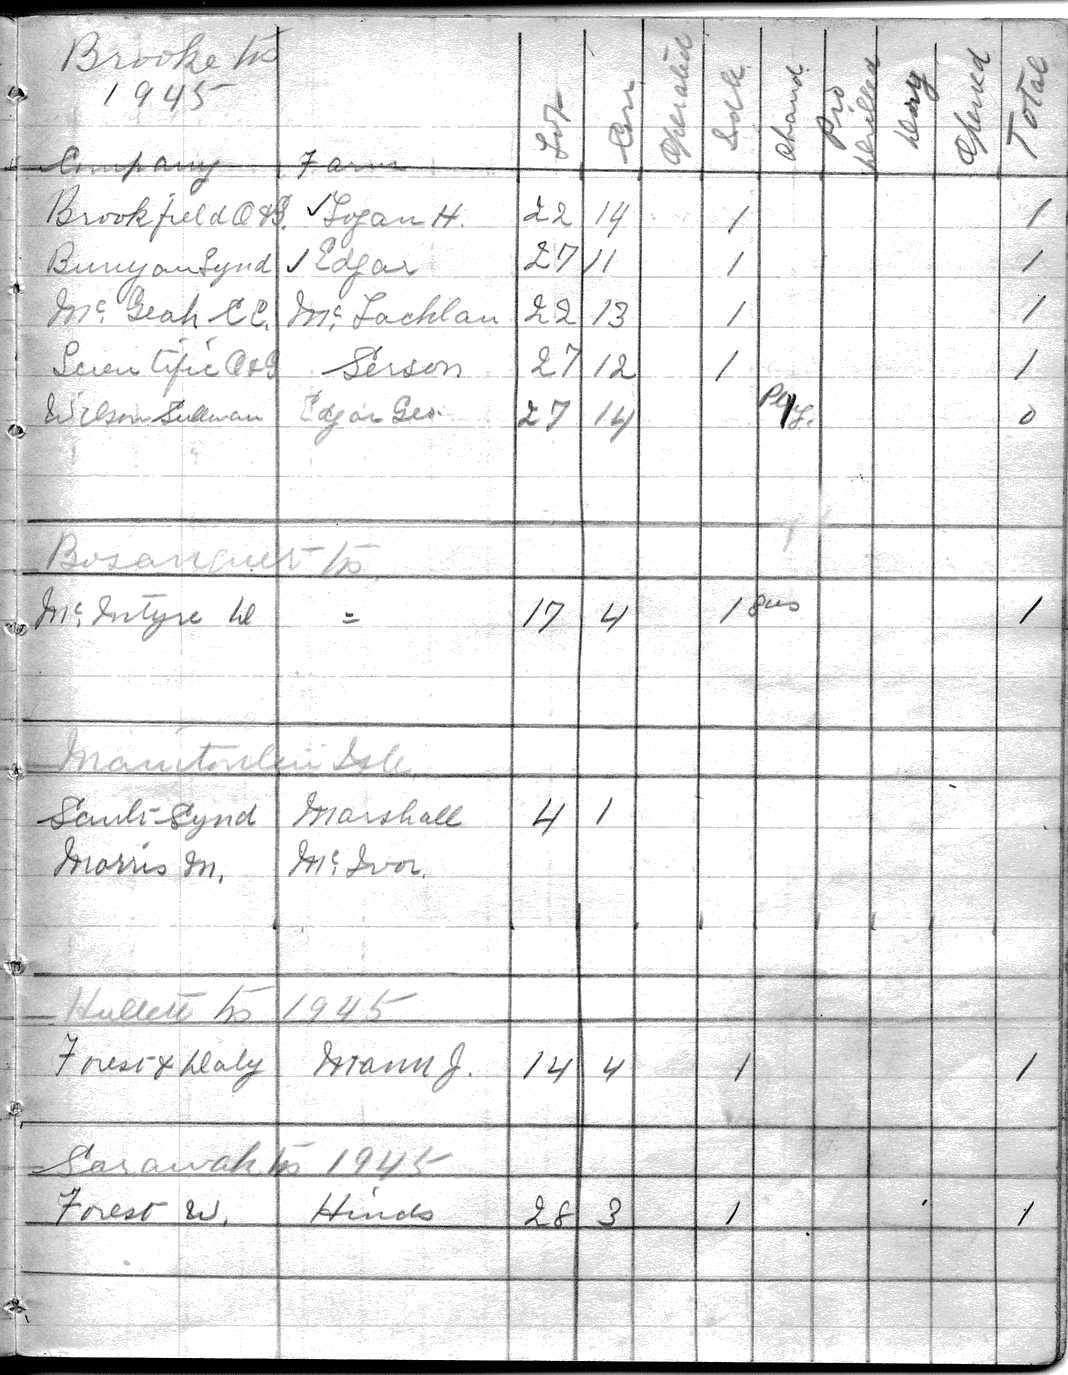 Brooke tp
1945
Company Farm Lot Con Operated Idle Aband. Pro Drilled Dry Opened Total
Brookfield O&G. ✓ Logan H. 22 14 1 1
Bunyan Synd ✓ Edgar 27 11 1 1
Mc. Geah C.C. Mc. Lachlan 22 13 1 1
Scientific O&G Serson 27 12 1 1
Wilson Sullivan Edgar Geo. 27 14 1 0
Bosanquet tp
Mc. Intyre D = 17 4 1 gas 1
Manitoulin Isle
Sault Synd Marshall 4 1
Morris M. Mc. Ivor.
Hullett tp 1945
Forest & Daly Mann J. 14 4 1 1
Sarawak tp 1945
Forest W. Hinds 28 3 1 1